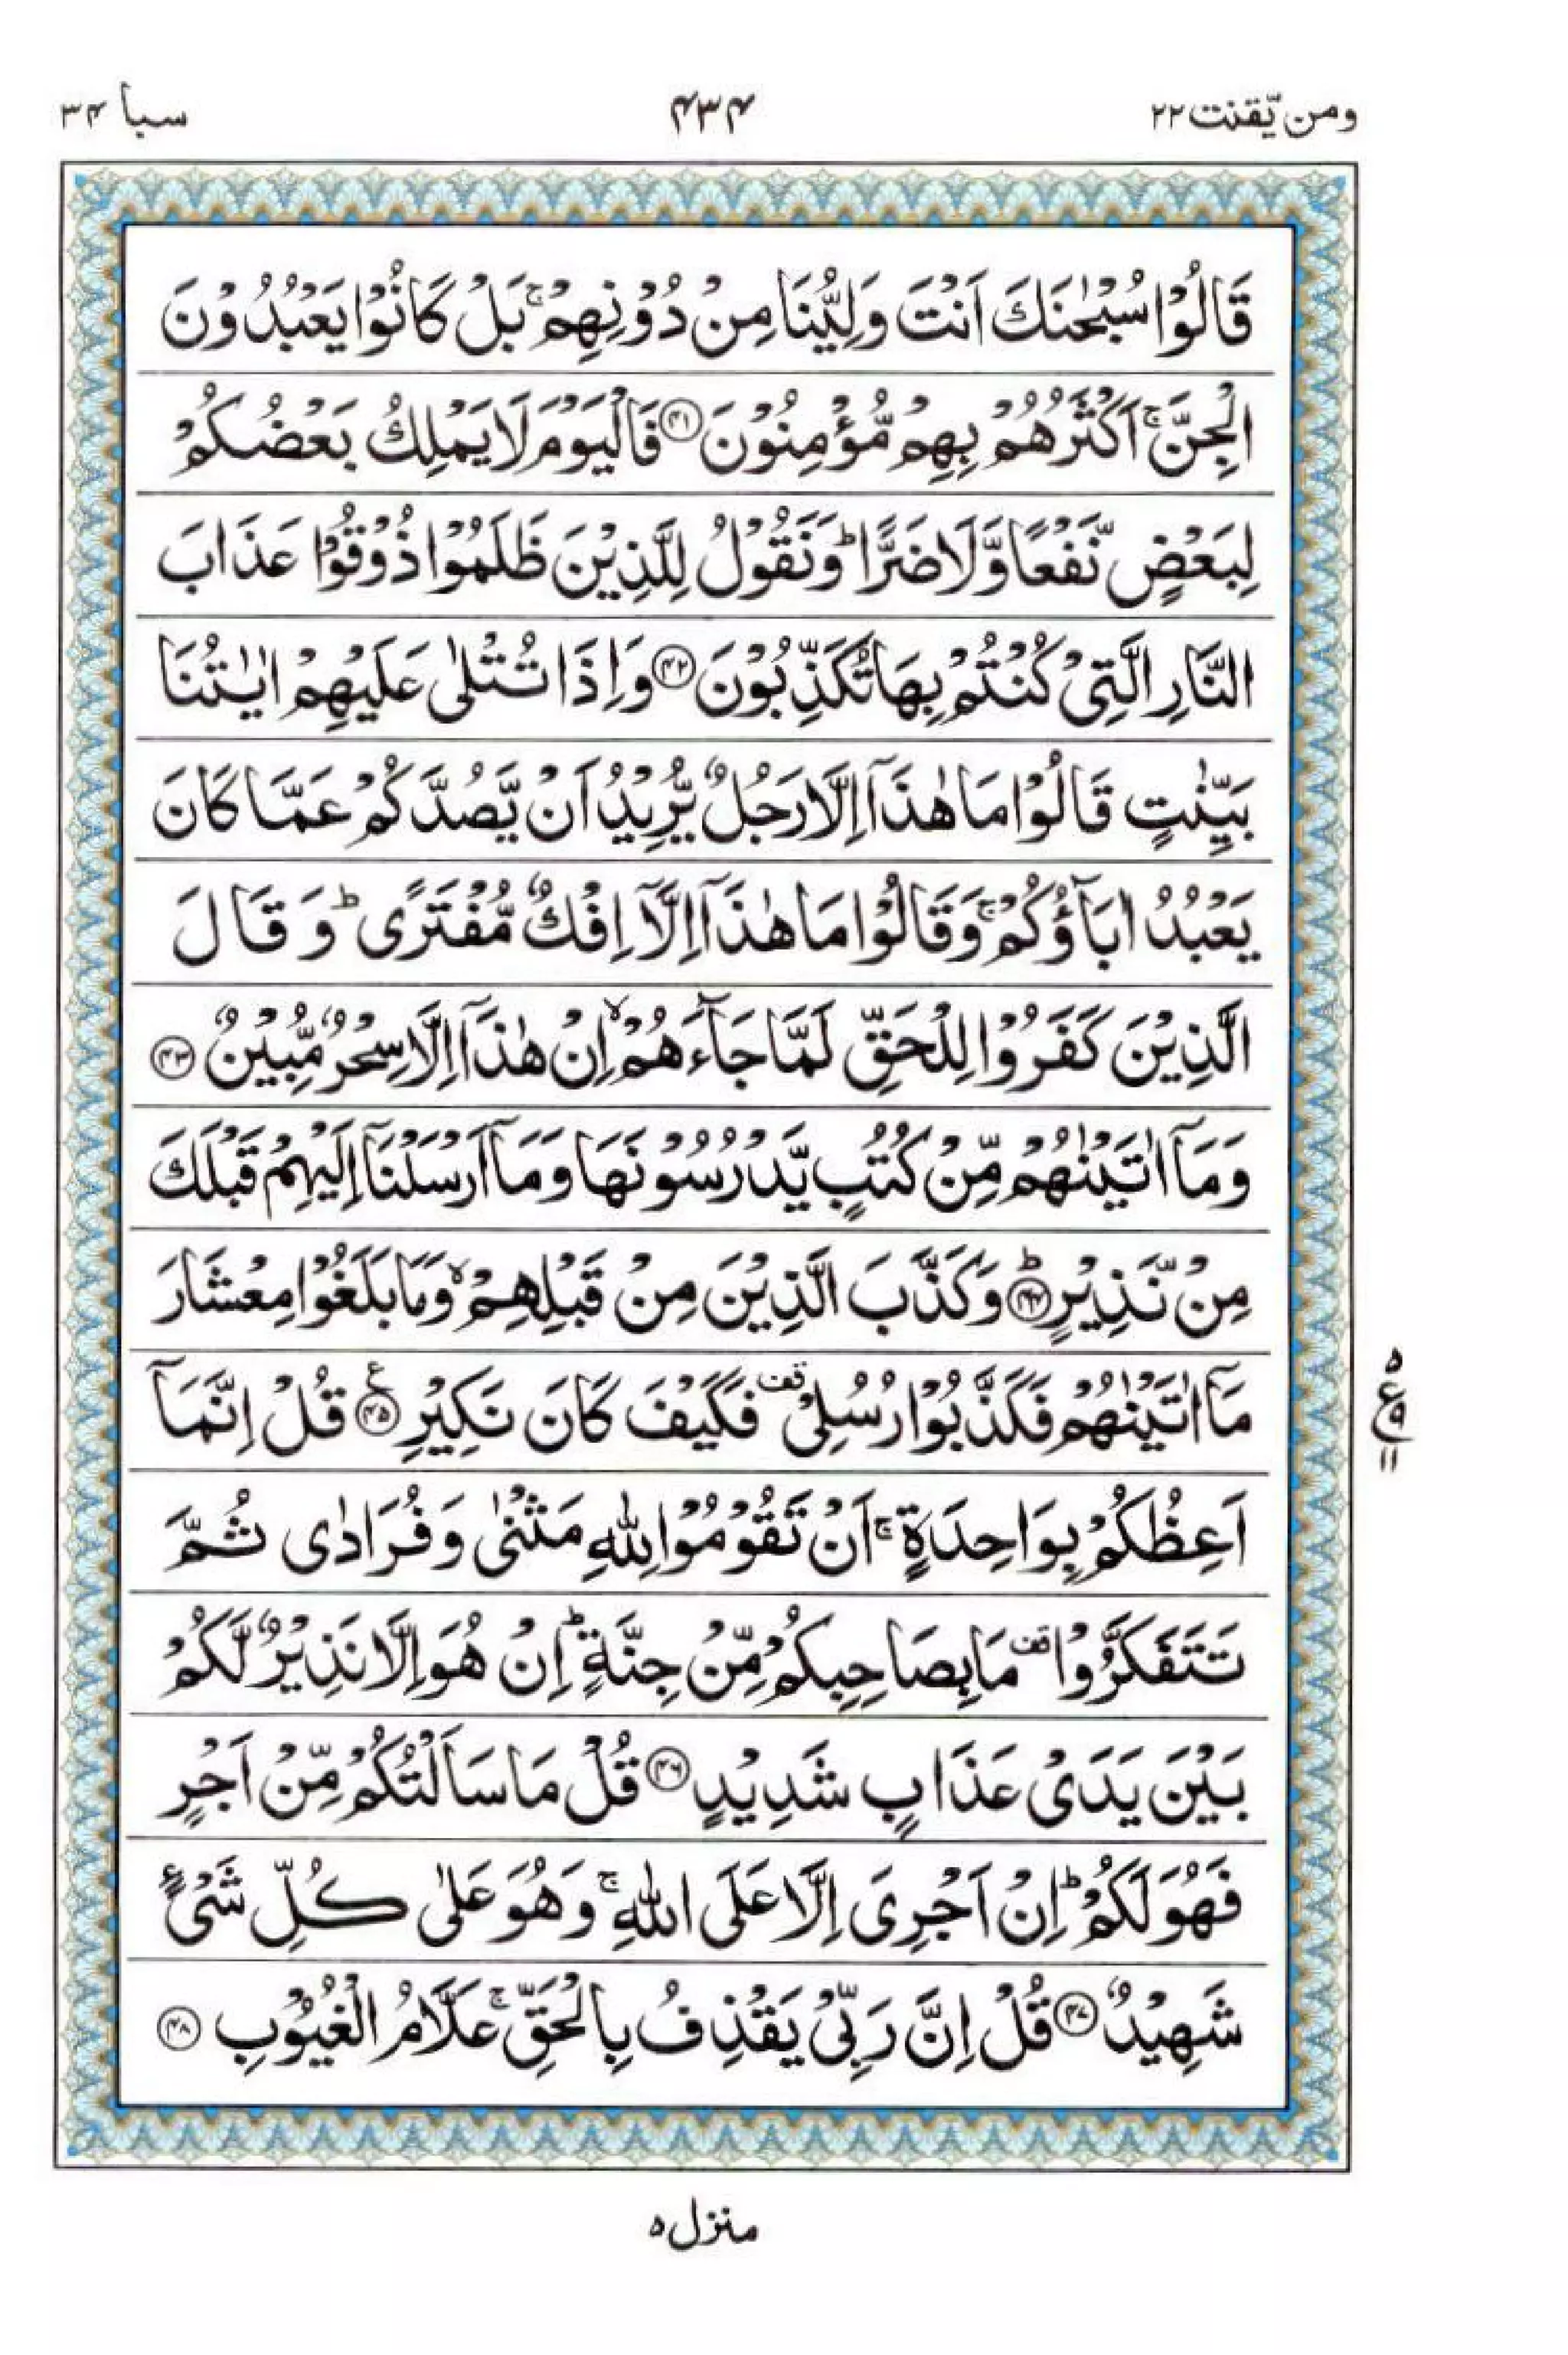 ومن یّقنت ۲۲
۴۳۴
سبا ۳۴
قَالُوْا سُبْحٰنَكَ اَنْتَ وَلِيُّنَا مِنْ دُوْنِهِمْ ۚ بَلْ كَانُوْا يَعْبُدُوْنَ
الْجِنَّ ۚ اَكْثَرُهُمْ بِهِمْ مُّؤْمِنُوْنَ ۴۱ فَالْيَوْمَ لَا يَمْلِكُ بَعْضُكُمْ
لِبَعْضٍ نَّفْعًا وَّلَا ضَرًّا ؕ وَنَقُوْلُ لِلَّذِيْنَ ظَلَمُوْا ذُوْقُوْا عَذَابَ
النَّارِ الَّتِىْ كُنْتُمْ بِهَا تُكَذِّبُوْنَ ۴۲ وَاِذَا تُتْلٰى عَلَيْهِمْ اٰيٰتُنَا
بَيِّنٰتٍ قَالُوْا مَا هٰذَاۤ اِلَّا رَجُلٌ يُّرِيْدُ اَنْ يَّصُدَّكُمْ عَمَّا كَانَ
يَعْبُدُ اٰبَآؤُكُمْ ۚ وَقَالُوْا مَا هٰذَاۤ اِلَّاۤ اِفْكٌ مُّفْتَرًى ؕ وَقَالَ
الَّذِيْنَ كَفَرُوْا لِلْحَقِّ لَمَّا جَآءَهُمْ ۙ اِنْ هٰذَاۤ اِلَّا سِحْرٌ مُّبِيْنٌ ۴۳
وَمَاۤ اٰتَيْنٰهُمْ مِّنْ كُتُبٍ يَّدْرُسُوْنَهَا وَمَاۤ اَرْسَلْنَاۤ اِلَيْهِمْ قَبْلَكَ
مِنْ نَّذِيْرٍ ؕ ۴۴ وَكَذَّبَ الَّذِيْنَ مِنْ قَبْلِهِمْ ۙ وَمَا بَلَغُوْا مِعْشَارَ
مَاۤ اٰتَيْنٰهُمْ فَكَذَّبُوْا رُسُلِىْ قف فَكَيْفَ كَانَ نَكِيْرِ ع ۴۵ قُلْ اِنَّمَاۤ
اَعِظُكُمْ بِوَاحِدَةٍ ۚ اَنْ تَقُوْمُوْا لِلّٰهِ مَثْنٰى وَفُرَادٰى ثُمَّ
تَتَفَكَّرُوْا قف مَا بِصَاحِبِكُمْ مِّنْ جِنَّةٍ ؕ اِنْ هُوَ اِلَّا نَذِيْرٌ لَّكُمْ
بَيْنَ يَدَىْ عَذَابٍ شَدِيْدٍ ۴۶ قُلْ مَا سَاَلْتُكُمْ مِّنْ اَجْرٍ
فَهُوَ لَكُمْ ؕ اِنْ اَجْرِىَ اِلَّا عَلَى اللّٰهِ ۚ وَهُوَ عَلٰى كُلِّ شَىْءٍ
شَهِيْدٌ ۴۷ قُلْ اِنَّ رَبِّىْ يَقْذِفُ بِالْحَقِّ ۚ عَلَّامُ الْغُيُوْبِ ۴۸
۵
ع ۹
۱۱
منزل ۵